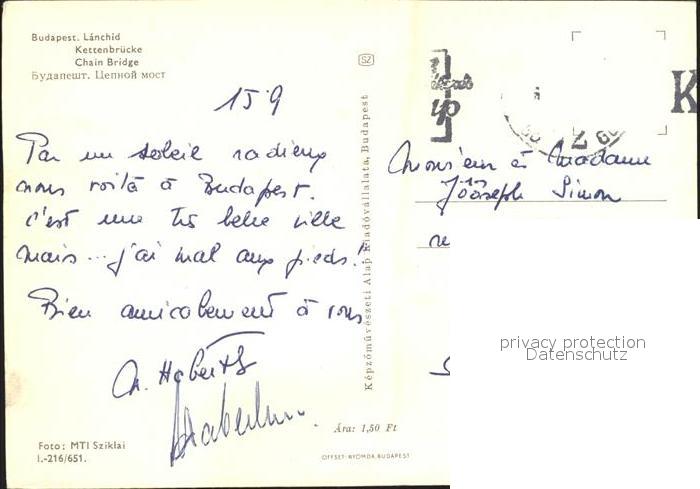 Budapest. Lánchid
Kettenbrücke
Chain Bridge
Будапешт. Цепной мост
SZ
15 9
K
Par un soleil radieux
nous voilà à Budapest.
c'est une très belle ville
mais... j'ai mal aux pieds!
Bien amicalement à vous
Képzőművészeti Alap Kiadóvállalata, Budapest
Monsieur à Madame
Jööseph Simon
privacy protection
Datenschutz
Ára: 1,50 Ft
Foto: MTI Sziklai
I.-216/651.
OFFSET-NYOMDA, BUDAPEST